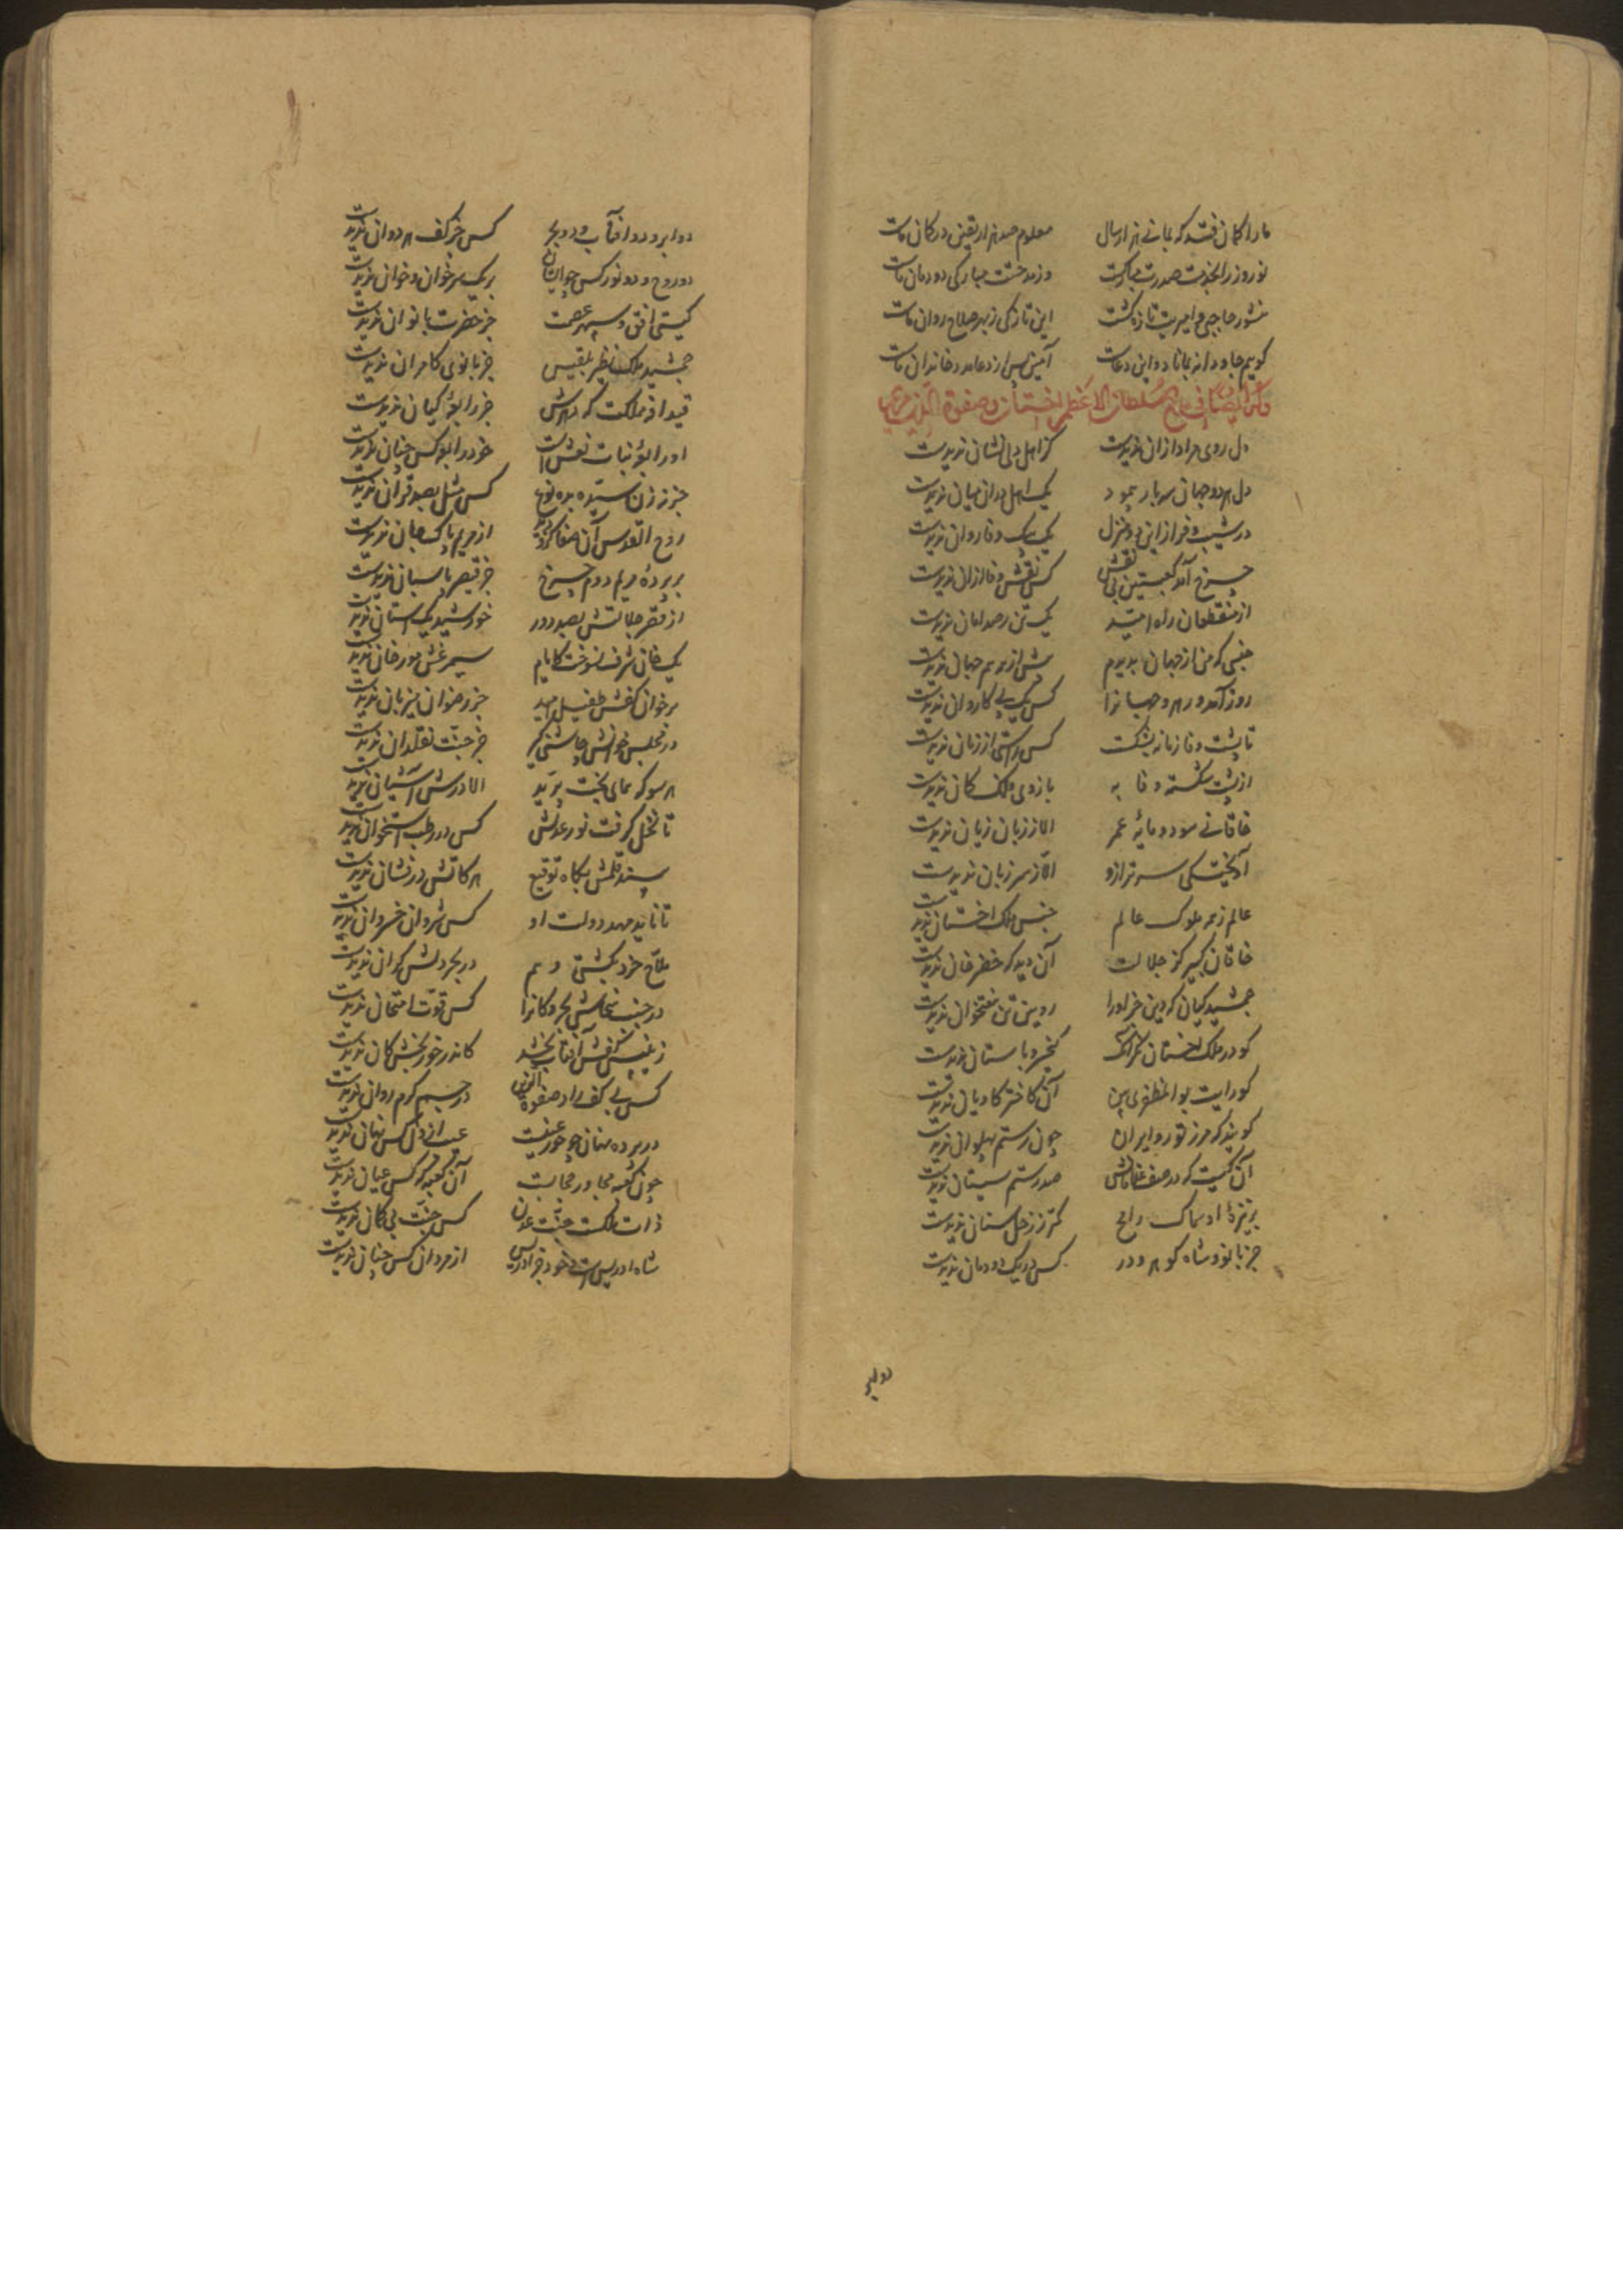 ما را گمان فتد که بمانی هزار سال معلوم صد هزار یقین در گمان ماست
نوروز را بخدمت صدرت مبارکست وز مدحتت مبارکی دودمان ماست
منشور حاجبی و امیریت تازه گشت این تازگی ز بهر صلاح روان ماست
گویم جاودانه بمانا دو این دعاست آمین پس از دعا مدد خاندان ماست
وله ایضا فی مدح السلطان الاعظم اخستان و صفوة الدین
دل روی مراد از آن ندیدست کز اهل دلی نشان ندیدست
دل هر دو جهان سه بار پیمود یک اهل در آن میان ندیدست
در شیب و فراز این دو منزل یک پیک وفا روان ندیدست
چرخ آمد کعبتین بی نقش کس نقش وفا از آن ندیدست
از منقطعان راه امید یک تن رصد امان ندیدست
جنسی که من از جهان بدیدم شش از بر هم جهان ندیدست
روز آمد و رهرو جهانرا کس یک پی کاروان ندیدست
تا پشت وفا زمانه بشکست کس راستی از زمان ندیدست
از پشت شکسته وفا به بازوی فلک کمان ندیدست
خاقانی سود و مایهٔ عمر الا ز زبان زیان ندیدست
آویختگی سر ترازو الا ز سر زبان ندیدست
عالم ز همه ملوک عالم جنس ملک اخستان ندیدست
خاقان کبیر کز جلالت آن دید که خضرخان ندیدست
جمشید کیان که دین جز او را رویین تن هفتخوان ندیدست
کو در ملک اخستان نگر آنک کیخسرو باستان ندیدست
کو رایت بوالمظفری بین آن کاختر کاویان ندیدست
گوید که مرز تور و ایران چون رستم پهلوان ندیدست
آن کیست که در صف غلامانش صد رستم سیستان ندیدست
بر نیزهٔ او سماک رامح کمتر ز زحل سنان ندیدست
جز بانو و شاه کو هر دو در کس در یک دودمان ندیدست
دو ابر
دو ابر و دو آفتاب و دو بحر کس جز کف هر دوان ندیدست
دو روح و دو نور کس جو ایشان بر یک سر خوان و خوان ندیدست
گیتی افق سپهر عصمت جز حضرت بانوان ندیدست
جمشید ملک نظیر بلقیس جز بانوی کامران ندیدست
قیدافهٔ مملکت که رایش جز رابعهٔ کیان ندیدست
او رابعهٔ نبات نعش است خود رابعه کس چنان ندیدست
جز زن ستوده به ده نوع کس مثل بصد قران ندیدست
روح القدس آن صفا کزو دید از مریم پاک جان ندیدست
بر پردهٔ مریم دوم چرخ جز قیصر پاسبان ندیدست
از قصر جلالتش بصد دور خورشید یک آستان ندیدست
یک خان شرف نسوخت کایام سیمرغش مورخان ندیدست
بر خوان کفش طفیل امید جز رضوان میزبان ندیدست
در مجلس خوانش چاشنی گیر جز جنت نقلدان ندیدست
هر سو که همای بخت پرید الا درش آشیان ندیدست
تا نخل گرفت نور عدلش کس در رطب استخوان ندیدست
بیند قلمش بگاه توقیع هر کاتش درفشان ندیدست
تا نامد مهد دولت او کس شروان خسروان ندیدست
ملاح خرد بکشتی وهم در بحر دلش کران ندیدست
در جنب سخاش بحر و کانرا کس قوت امتحان ندیدست
ز نبیش کفش آفتاب بخشد کاندر خور بخش کان ندیدست
کس بی کف راد صفوة الدین در جسم کرم روان ندیدست
در پرده نهان چو حور غیبست عیب از دل کس نهان ندیدست
چون کعبه مجاور حجابست آن کعبه که کس عیان ندیدست
ذات ملکست جنت عدن کس جنت بی گمان ندیدست
شاه ادریس است و خود جز ادریس از مردان کس جنان ندیدست